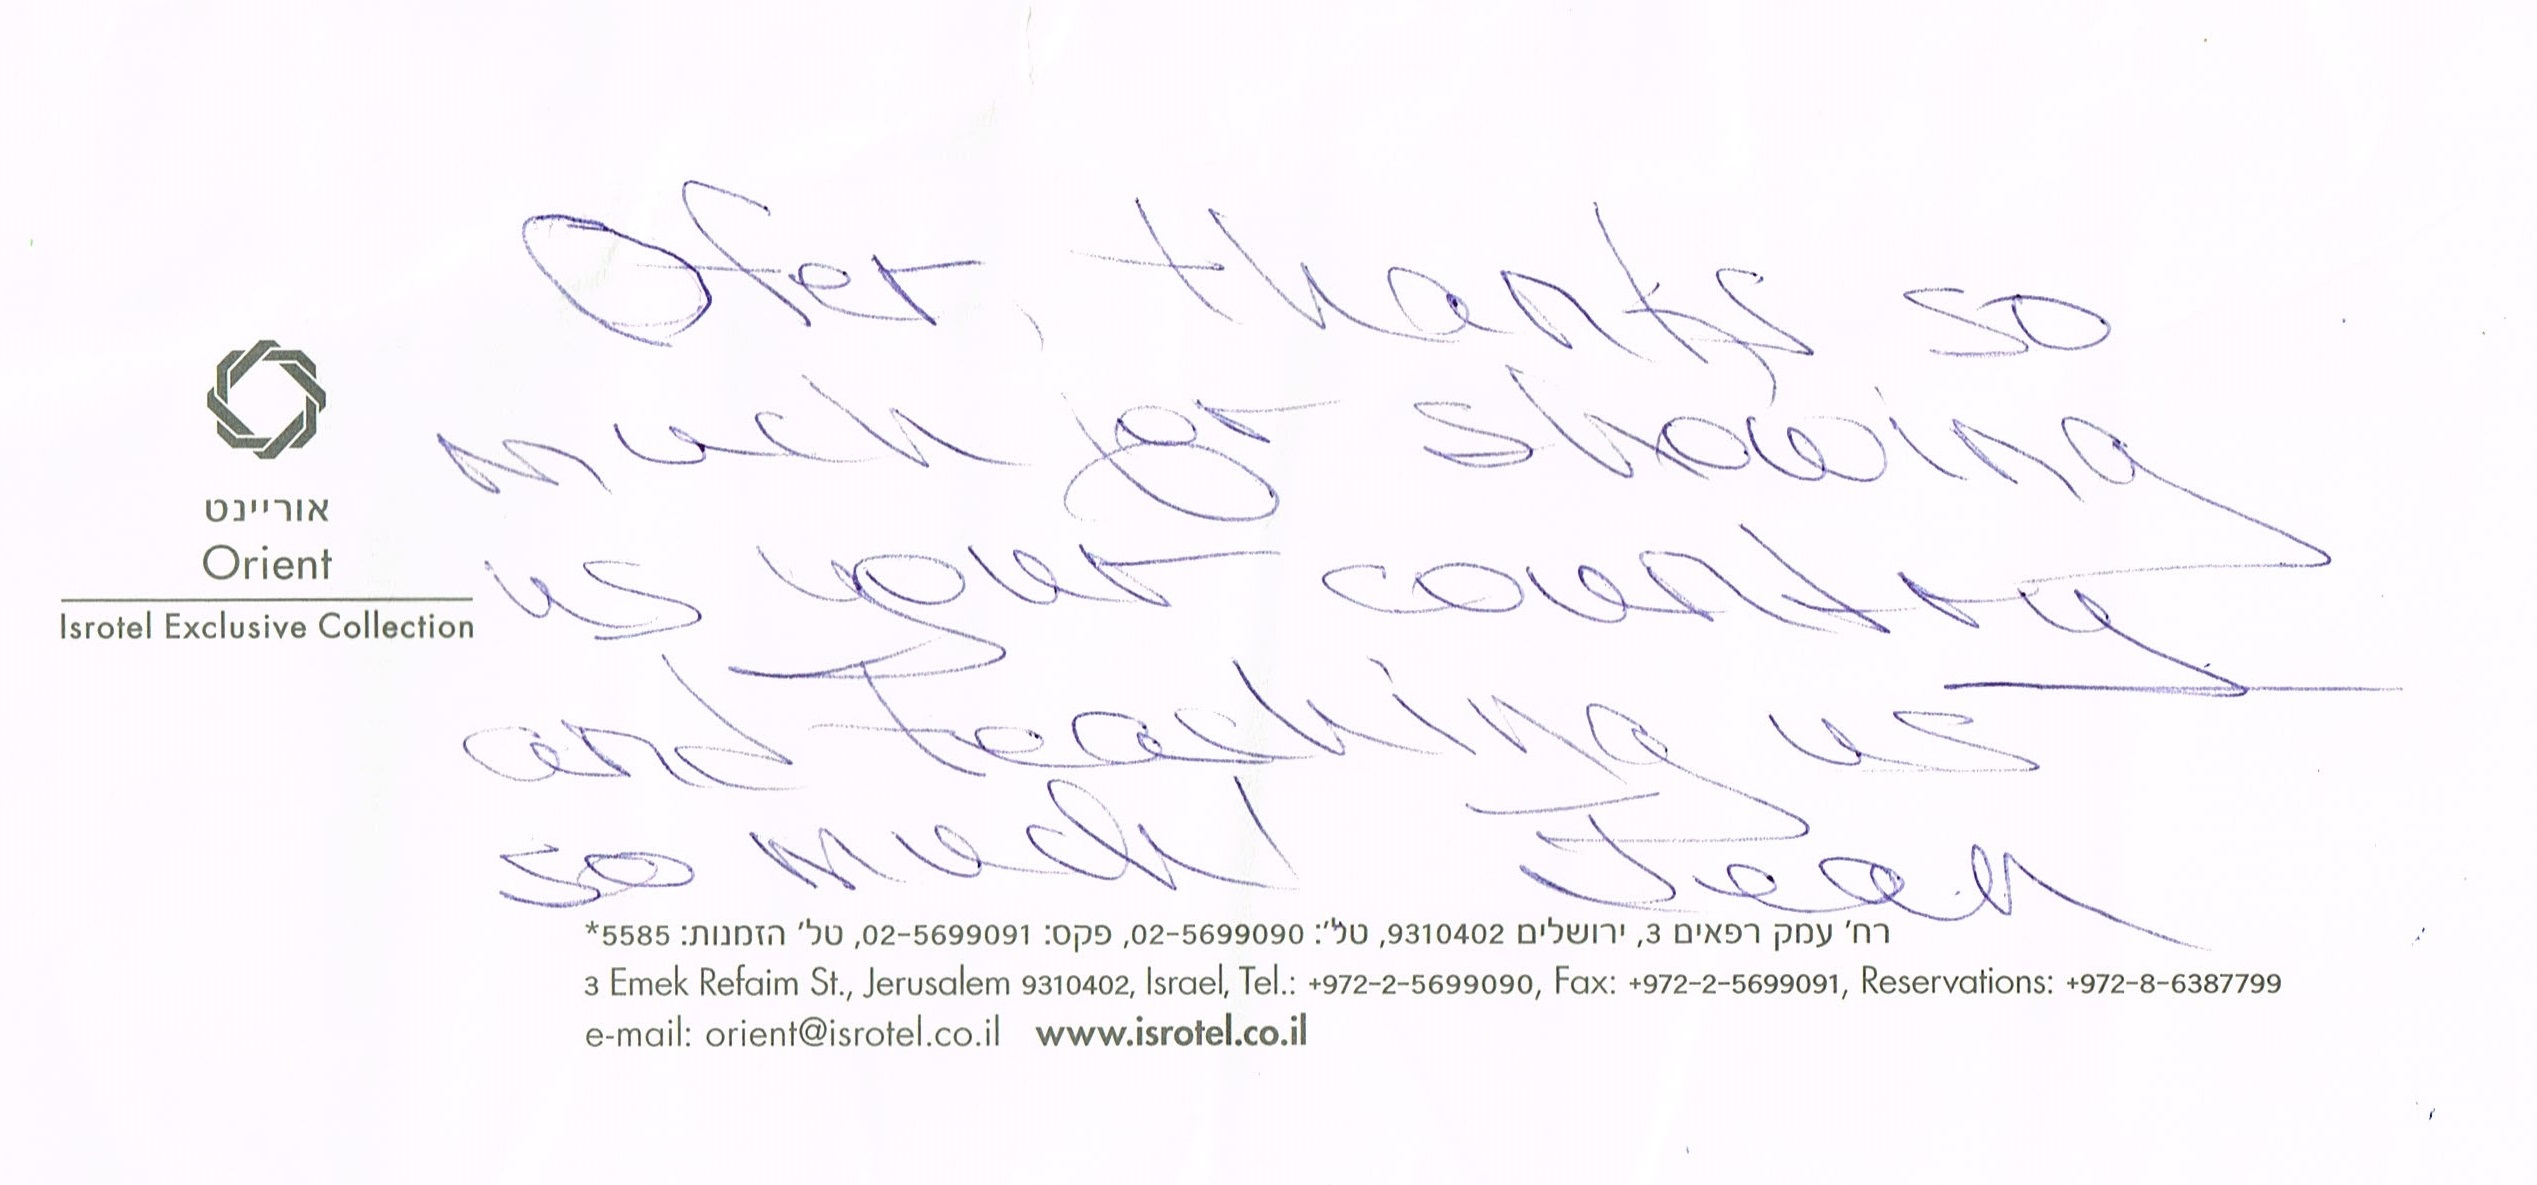 Ofer, thanks so
much for showing
us your country
and teaching us
so much! Jean
אוריינט
Orient
Isrotel Exclusive Collection
רח' עמק רפאים 3, ירושלים 9310402, טל': 02-5699090, פקס: 02-5699091, טל' הזמנות: 5585*
3 Emek Refaim St., Jerusalem 9310402, Israel, Tel.: +972-2-5699090, Fax: +972-2-5699091, Reservations: +972-8-6387799
e-mail: orient@isrotel.co.il www.isrotel.co.il